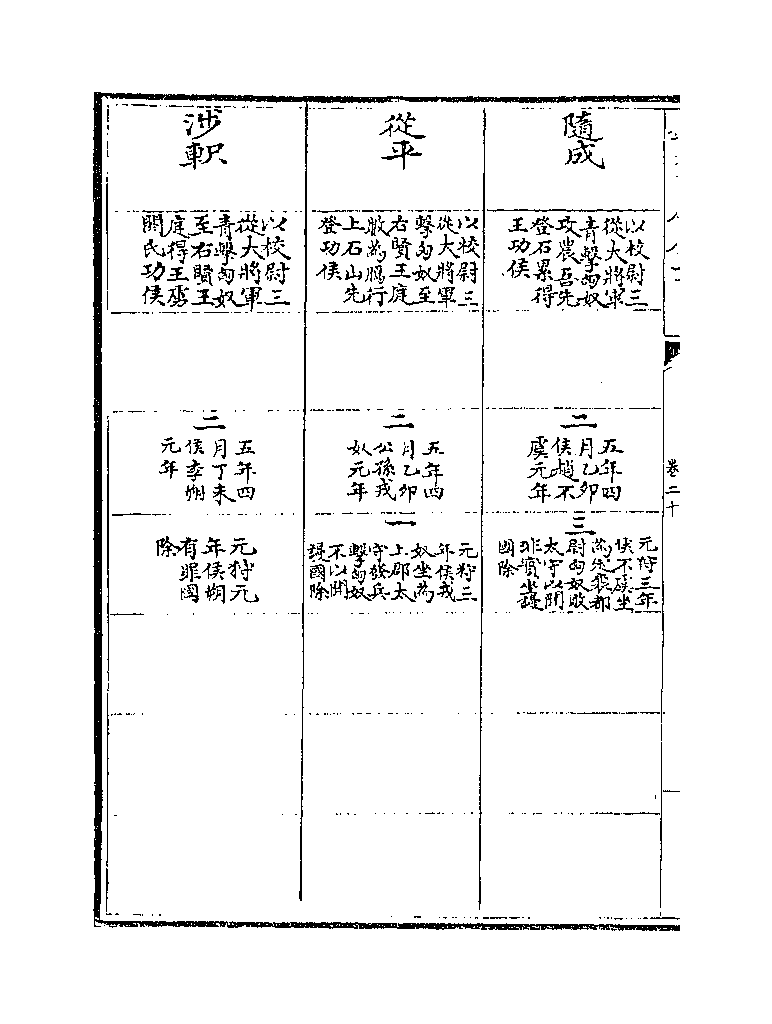 卷二十
隨成
以校尉三
從大將軍
青擊匈奴
攻農吾先
登石累得
王功侯
二
五年四
月乙卯
侯趙不
虞元年
三
元狩三年
侯不虞坐
為定襄都
尉匈奴敗
太守以聞
非實坐謾
國除
從平
以校尉三
從大將軍
擊匈奴至
右賢王庭
數為鴈行
上石山先
登功侯
二
五年四
月乙卯
公孫戎
奴元年
一
元狩三
年侯戎
奴坐為
上郡太
守發兵
擊匈奴
不以聞
謾國除
涉軹
以校尉三
從大將軍
青擊匈奴
至右賢王
庭得王虜
閼氏功侯
二
五年四
月丁未
侯李朔
元年
元狩元
年侯朔
有罪國
除